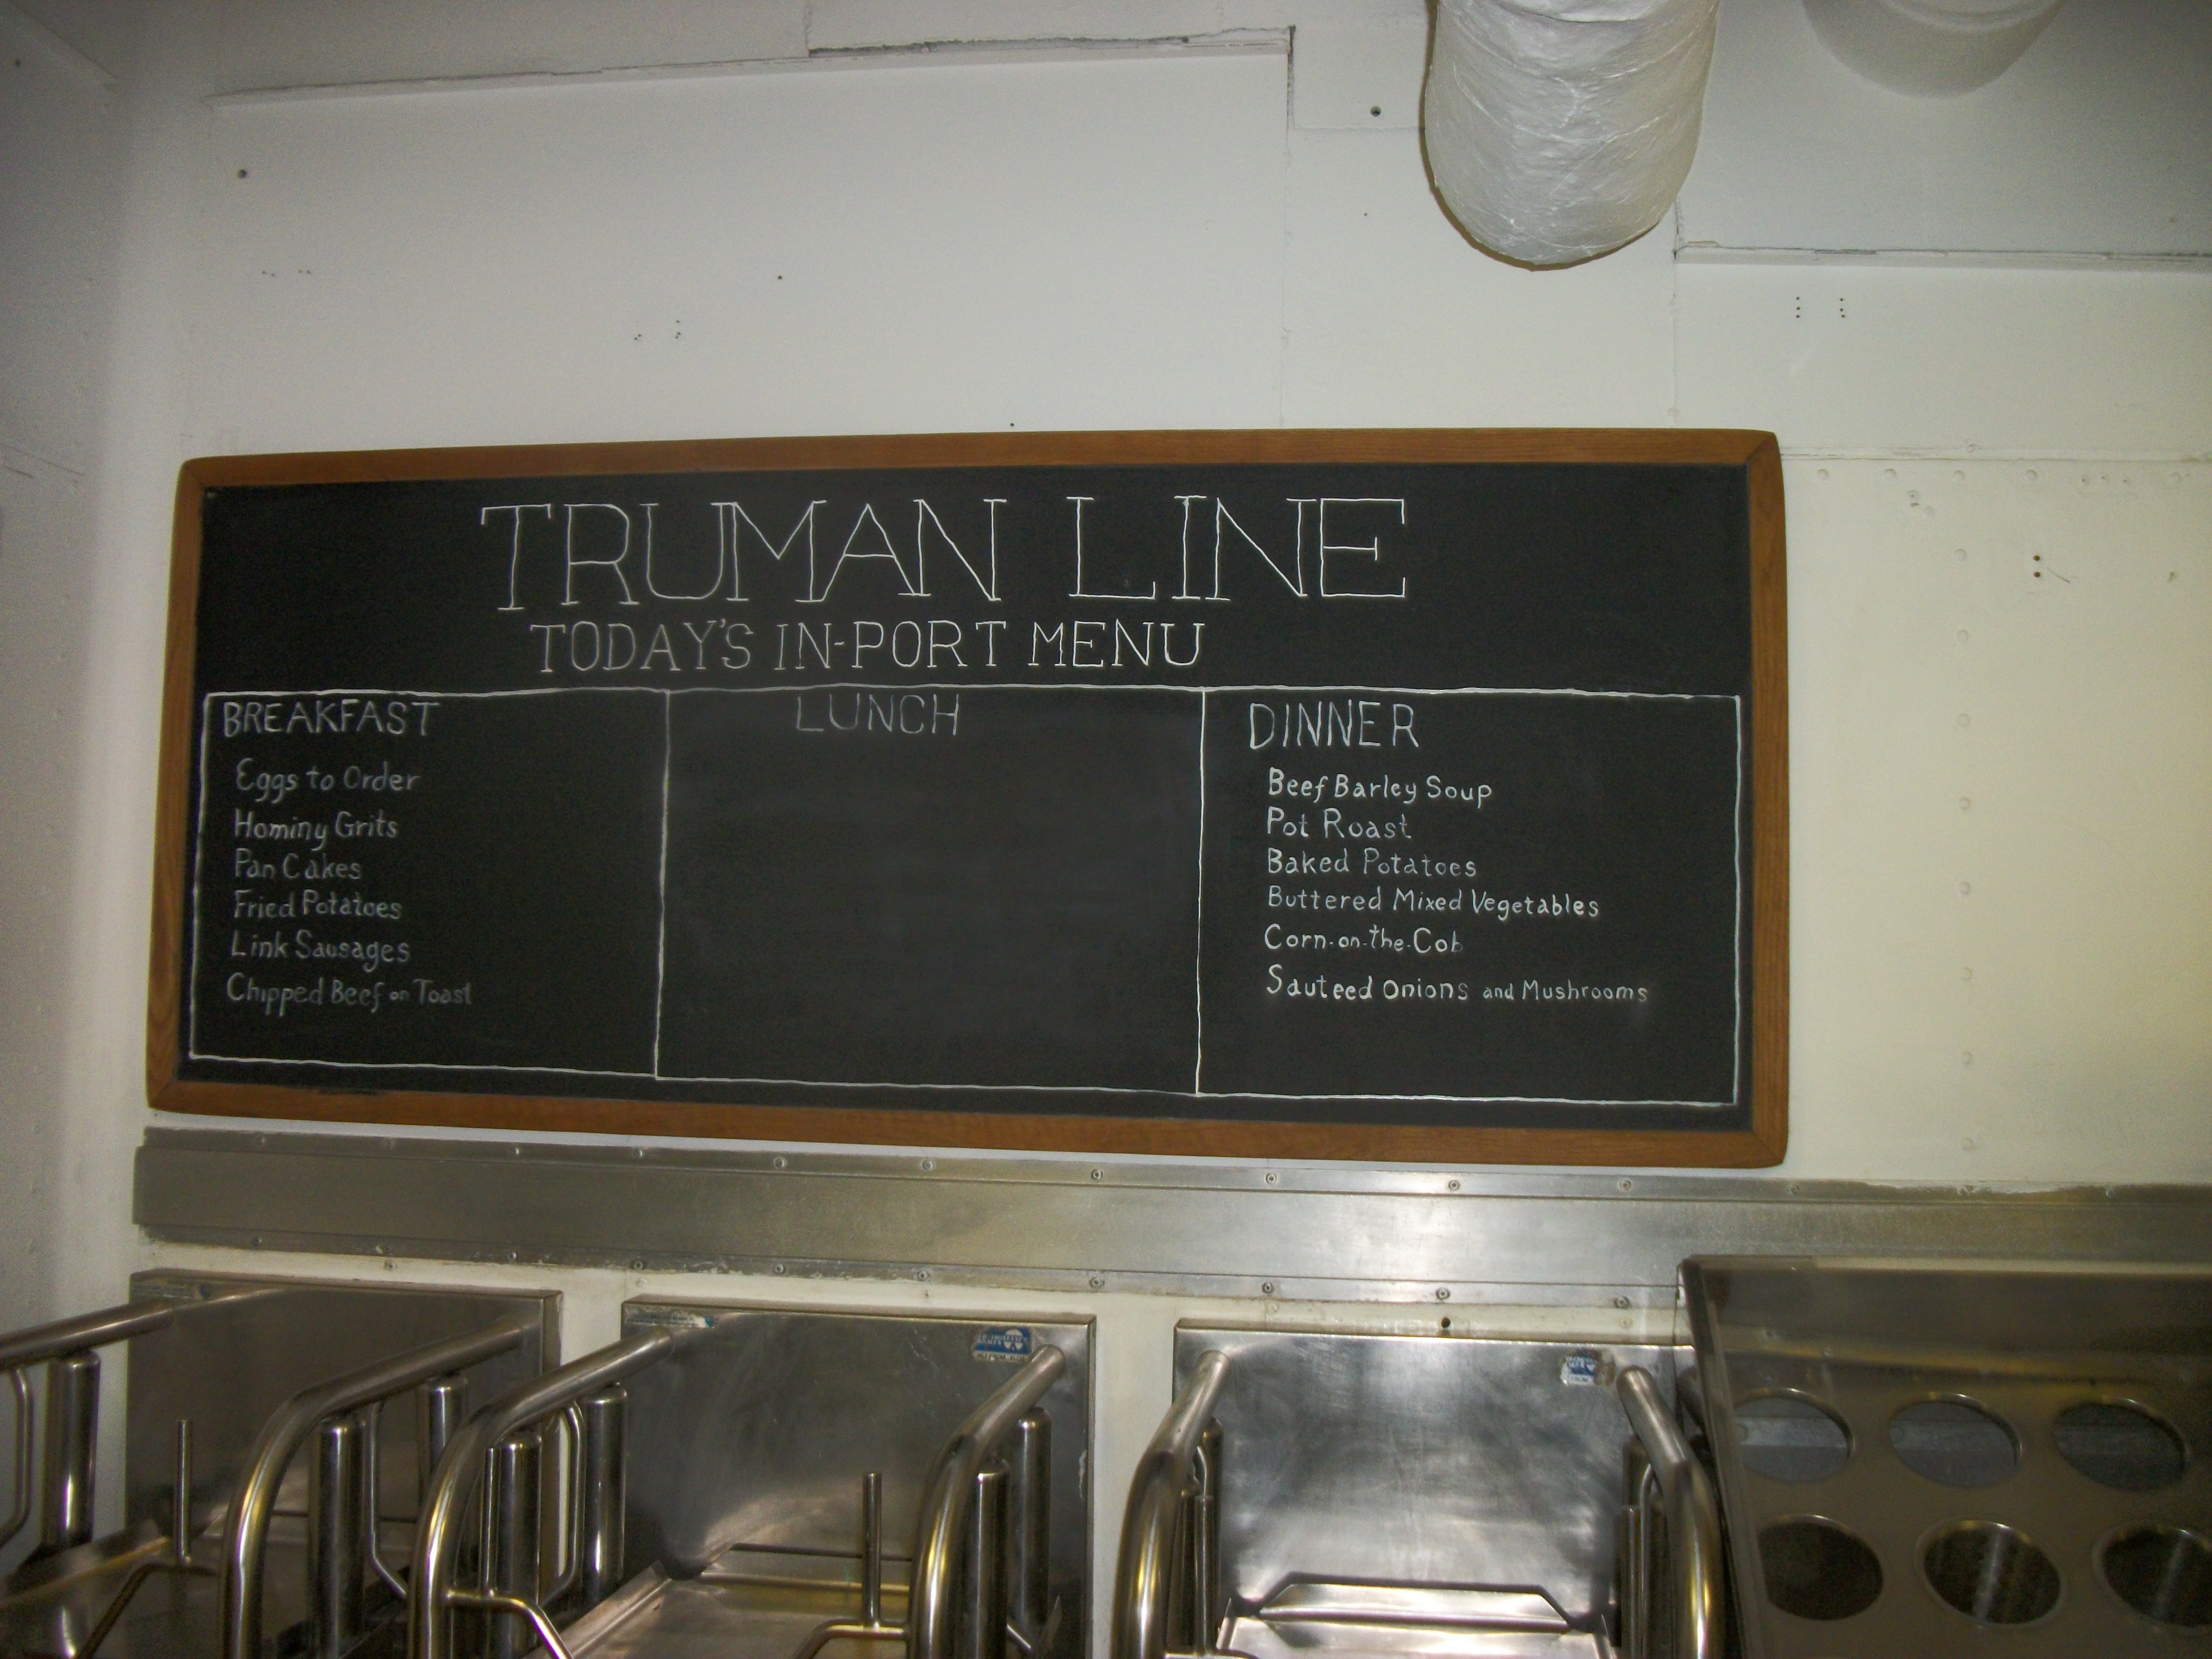 TRUMAN LINE
TODAY'S IN-PORT MENU
BREAKFAST
Eggs to Order
Hominy Grits
Pan Cakes
Fried Potatoes
Link Sausages
Chipped Beef on Toast
LUNCH
DINNER
Beef Barley Soup
Pot Roast
Baked Potatoes
Buttered Mixed Vegetables
Corn-on-the-Cob
Sauteed Onions and Mushrooms